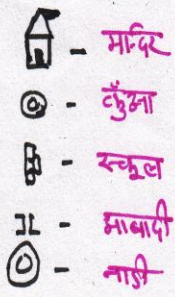 - मन्दिर
- कुँआ
- स्कूल
- आबादी
- नाडी